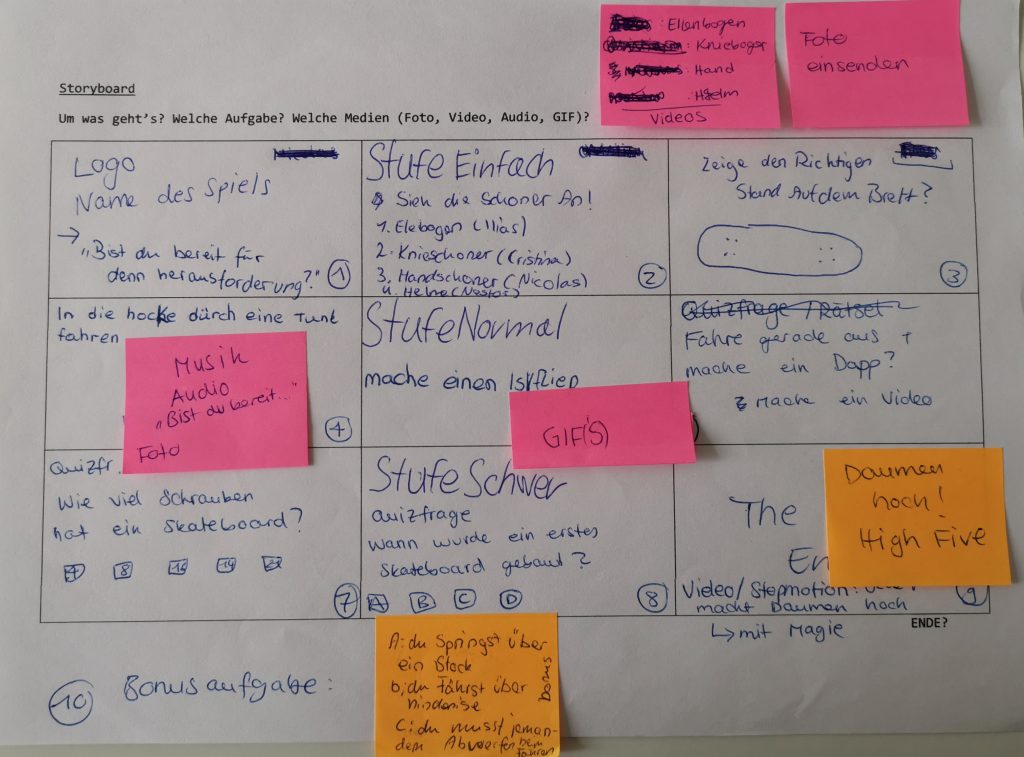 : Ellenbogen
: Knieboger
: Hand
: Helm
Videos
Foto
einsenden
Storyboard
Um was geht's? Welche Aufgabe? Welche Medien (Foto, Video, Audio, GIF)?
Logo
Name des Spiels
→ "Bist du bereit für
denn herausforderung?"
1
Stufe Einfach
Sieh die Schoner An!
1. Elebogen (Ilias)
2. Knieschoner (Cristina)
3. Handschoner (Nicolas)
4. Helme (Nestor)
2
Zeige den Richtigen
Stand Auf dem Brett?
3
In die hocke dürch eine Tunl
fahren
4
Musik
Audio
"Bist du bereit..."
Foto
Stufe Normal
mache einen
GIF(S)
Quizfrage / Rätsel
Fahre gerade aus +
mache ein Dapp?
Mache ein Video
Quizfr.
Wie viel Schrauben
hat ein Skateboard?
8
7
Stufe Schwer
Quizfrage
Wann wurde ein erstes
Skateboard gebaut?
A B C D
8
The
En
Video/Stepmotion:
macht Daumen hoch
↳ mit Magie
9
Daumen
hoch!
High Five
ENDE?
10 Bonusaufgabe:
A: du Springst über
ein Stock
b: du Fährst über
hindenise
C: du musst jeman-
dem Abwerfen beim
Fahren
bonus